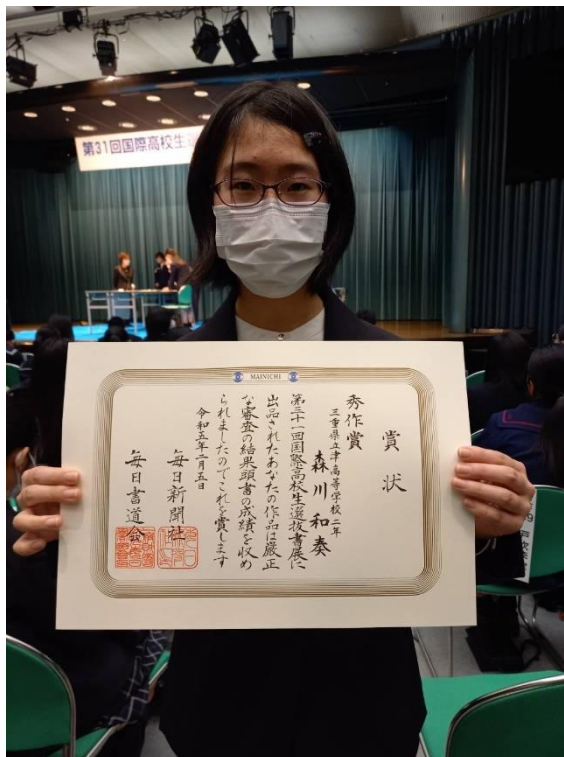 第31回国際高校生選
MAINICHI
賞状
秀作賞
三重県立津高等学校二年
森川和奏
第三十一回国際高校生選抜書展に
出品されたあなたの作品は厳正
な審査の結果頭書の成績を収め
られましたのでこれを賞します
令和五年二月五日
毎日新聞社
毎日書道会